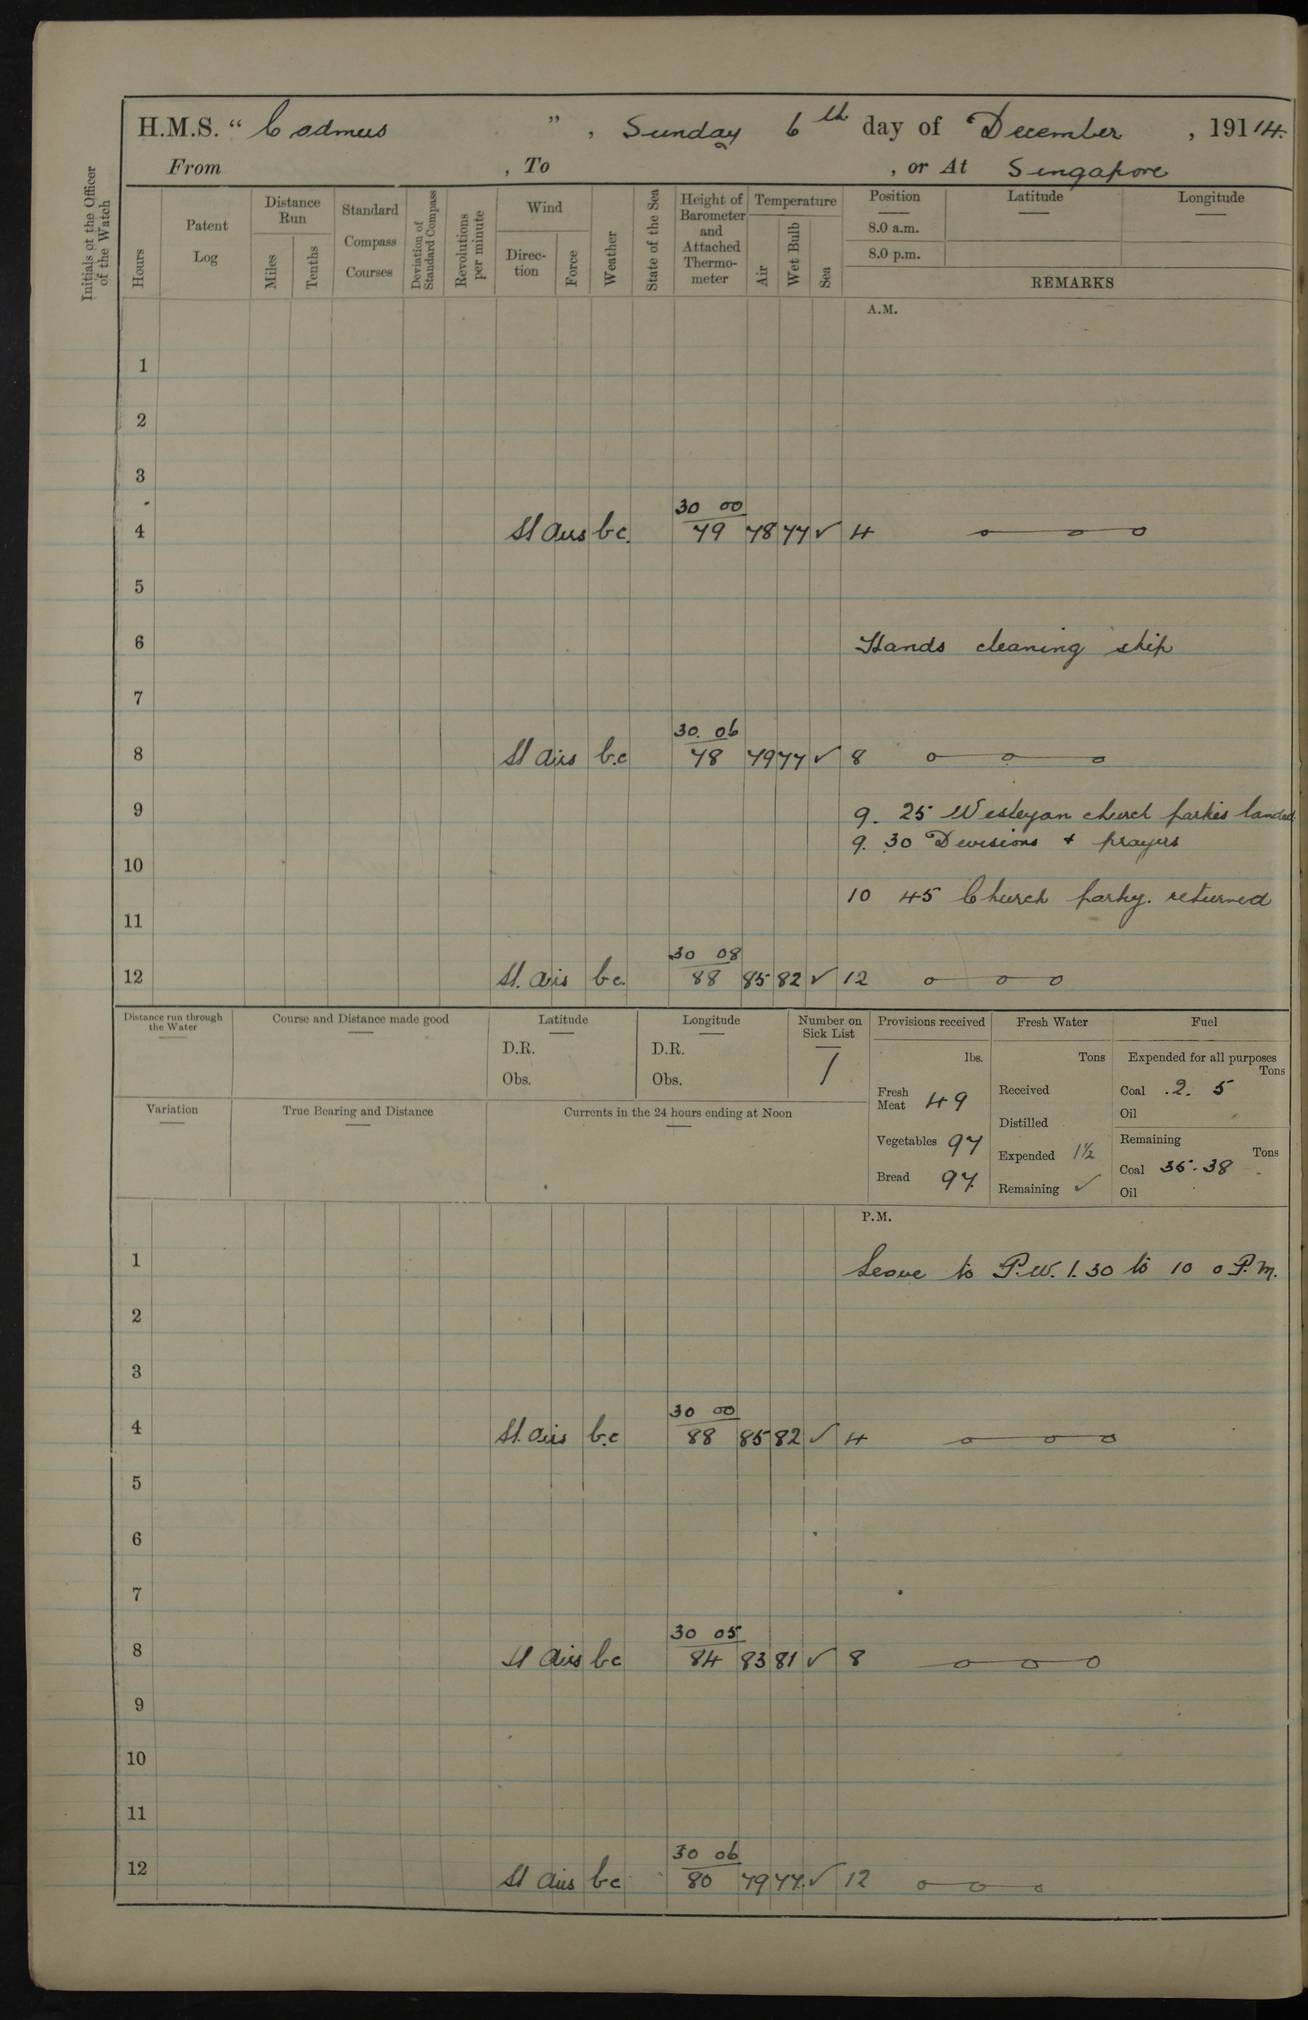 H.M.S. “ Cadmus ” , Sunday 6th day of December , 1914.
From , To , or At Singapore
Initials of the Officer of the Watch
Hours
Patent Log
Distance Run
Miles
Tenths
Standard Compass Courses
Deviation of Standard Compass
Revolutions per minute
Wind
Direction
Force
Weather
State of the Sea
Height of Barometer and Attached Thermometer
Temperature
Air
Wet Bulb
Sea
Position
8.0 a.m.
8.0 p.m.
Latitude
Longitude
REMARKS
A.M.
1
2
3
30 00
4 Lt airs bc. 79 78 77 ✓ 4
5
6 Hands cleaning ship
7
30. 06
8 Lt airs b.c 78 79 77 ✓ 8
9 9. 25 Wesleyan church parties landed
9. 30 Divisions + prayers
10
10 45 Church party. returned
11
30 08
12 Lt. airs bc. 88 85 82 ✓ 12
Distance run through the Water
Course and Distance made good
Latitude
D.R.
Obs.
Longitude
D.R.
Obs.
Number on Sick List
1
Provisions received
lbs.
Fresh Meat 49
Vegetables 97
Bread 97.
Fresh Water
Tons
Received
Distilled
Expended 1½
Remaining ✓
Fuel
Expended for all purposes
Tons
Coal .2. 5
Oil
Remaining
Tons
Coal 35.38
Oil
Variation
True Bearing and Distance
Currents in the 24 hours ending at Noon
P.M.
1 Leave to P.W. 1.30 to 10 0 P.M.
2
3
30 00
4 Lt. airs b.c 88 85 82 ✓ 4
5
6
7
30 05
8 Lt airs bc 84 83 81 ✓ 8
9
10
11
30 06
12 Lt airs bc 80 79 77. ✓ 12